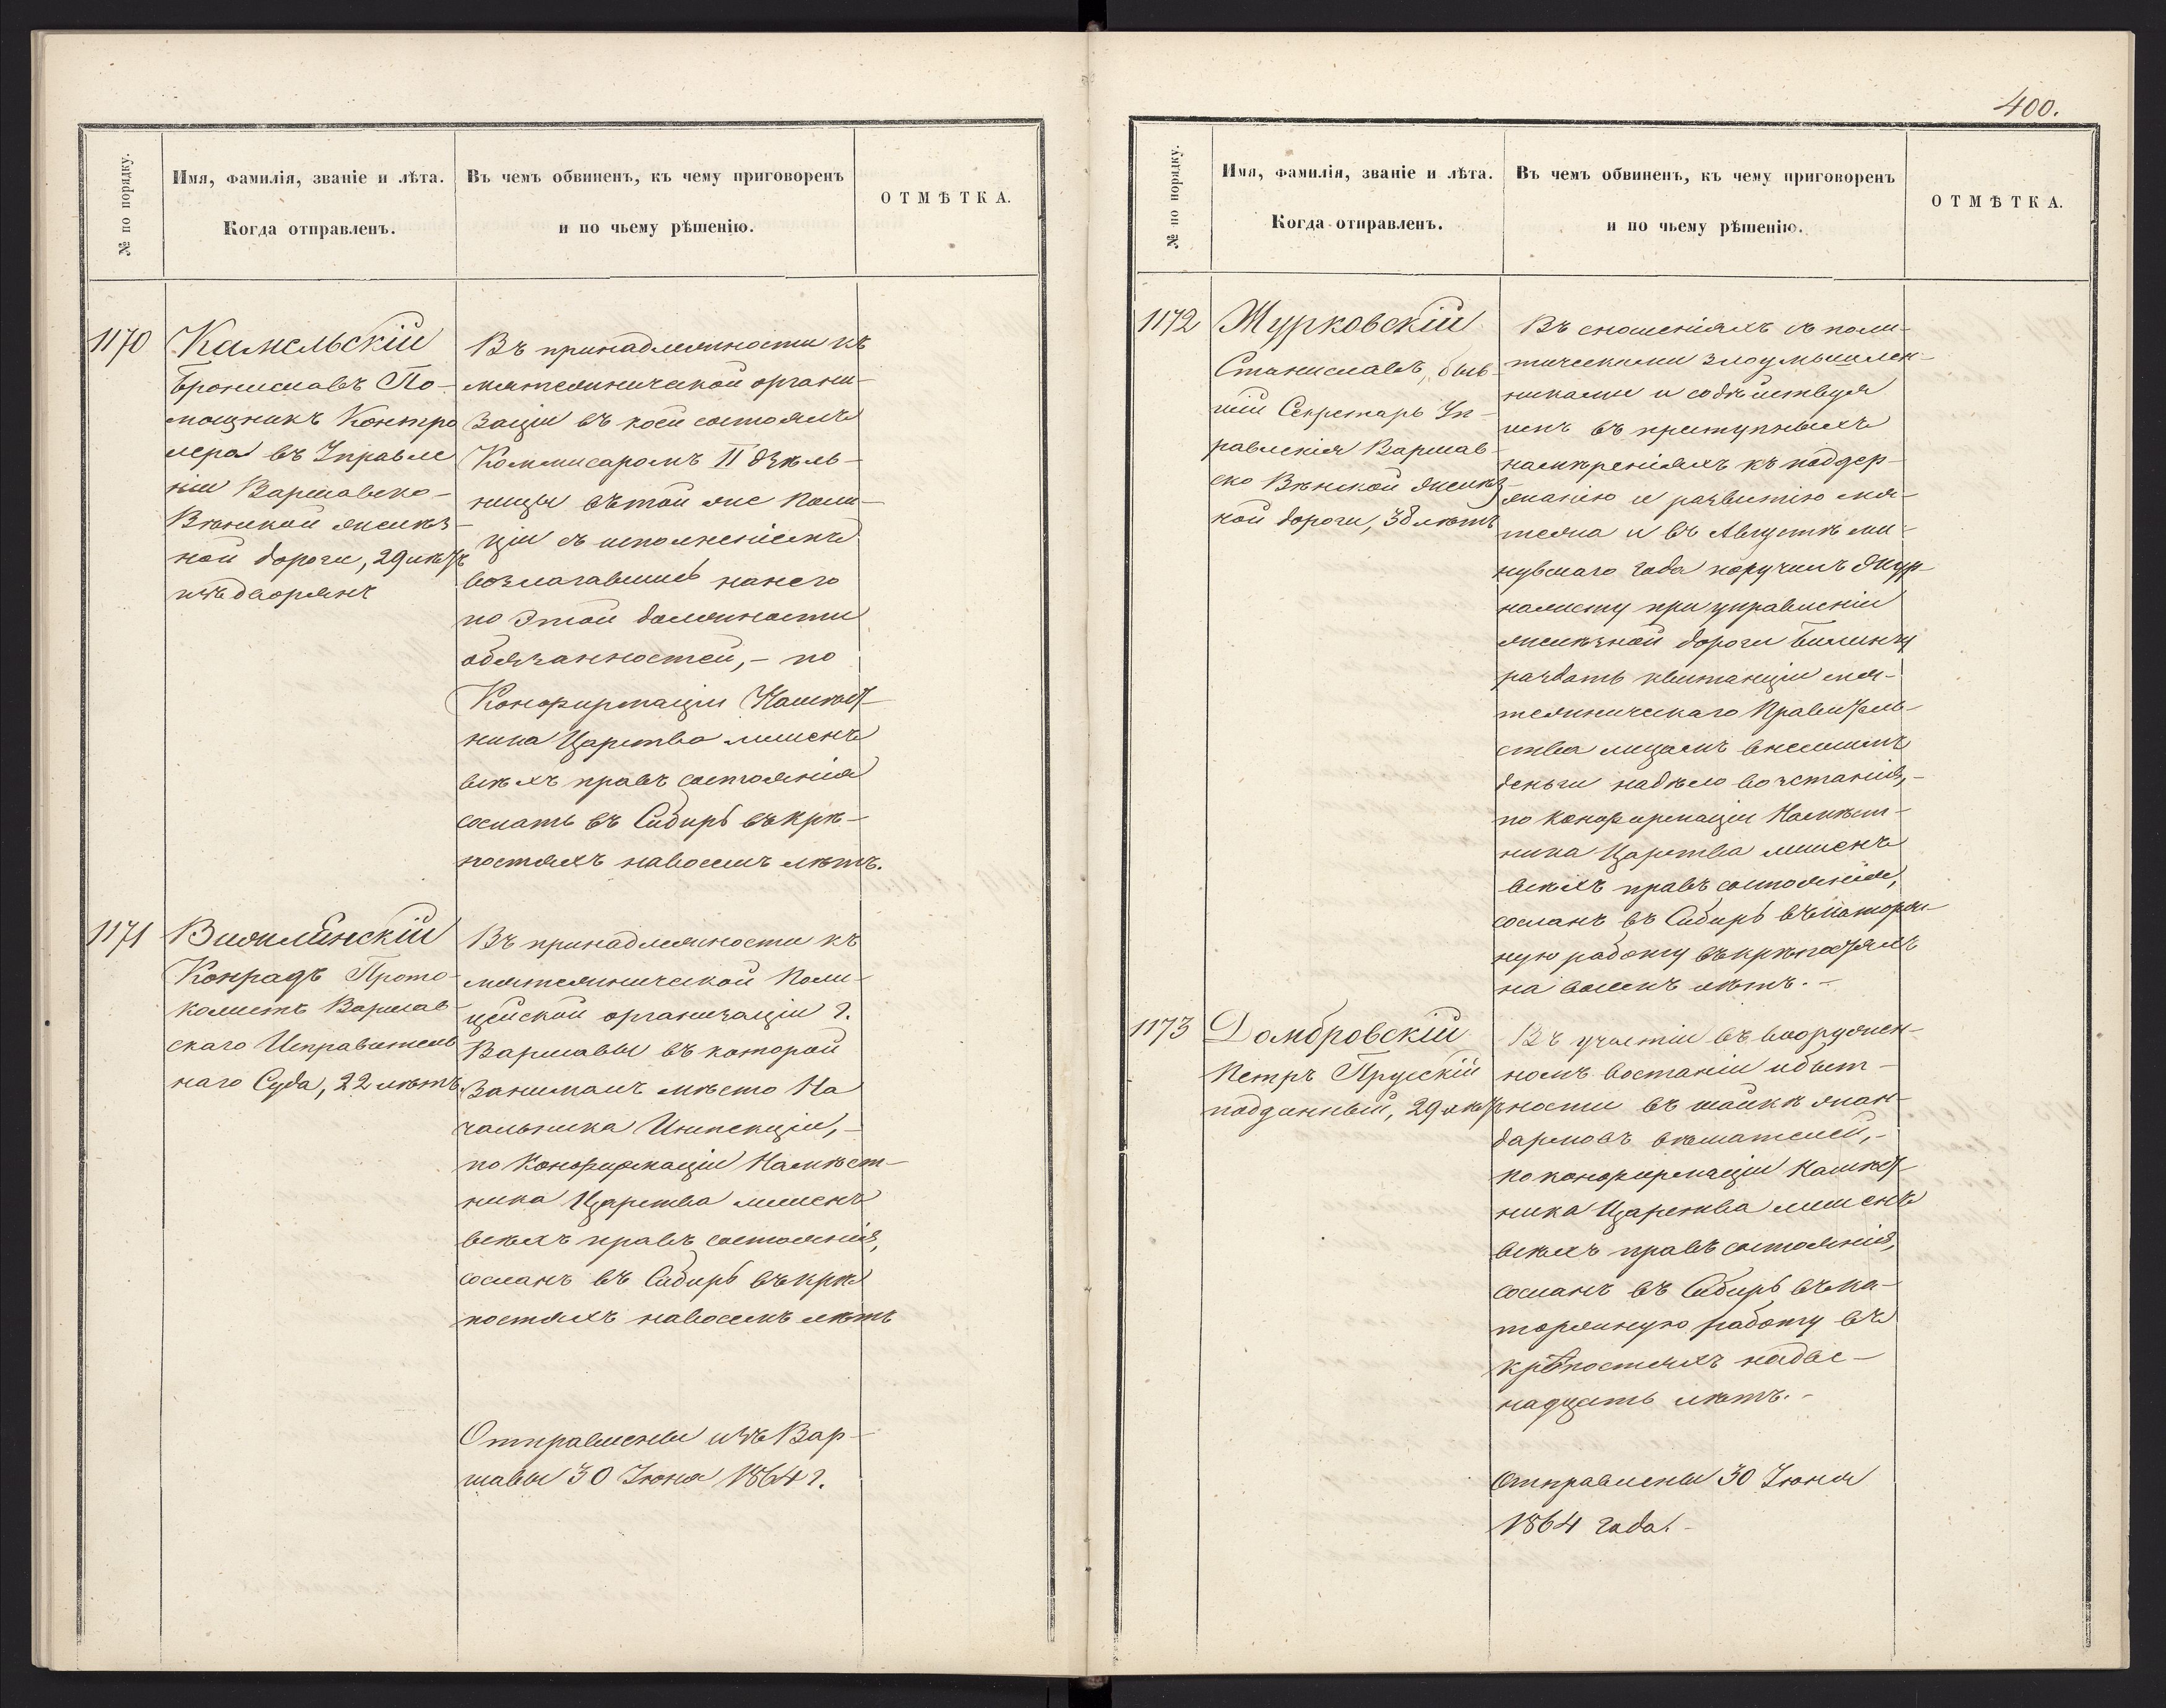 № по порядку.
Имя, фамилія, званіе и лѣта.
Когда отправленъ.
Въ чемъ обвиненъ, къ чему приговоренъ
и по чьему рѣшенію.
ОТМѢТКА.
1170
Камельскій
Брониславъ По-
мощникъ Контро
лера въ Управле
ніи Варшавско-
Вѣнской желѣз-
ной дороги, 29 лѣтъ
изъ дворянъ
Въ принадлежности къ
мятежнической органи-
заціи въ коей состоялъ
Коммисаромъ II дѣль-
ницы съ исполненіемъ
возлагавшихъ на него
по этой должности
обязанностей, - по
Конфирмаціи Намѣст-
ника Царства лишенъ
всѣхъ правъ состоянія
сослать въ Сибирь въ крѣ-
постяхъ на восемь лѣтъ.
1171
Конрадъ Прото-
колистъ Варшав-
скаго Исправитель
наго Суда, 22 лѣтъ
Въ принадлежности къ
мятежнической Поли-
цейской организаціи г.
Варшавы въ которой
занималъ мѣсто На
чальника Инспекціи, -
по Конфирмаціи Намѣст-
ника Царства лишенъ
всѣхъ правъ состоянія,
сосланъ въ Сибирь въ крѣ
постяхъ на восемь лѣтъ
Отправлены изъ Вар-
шавы 30 Іюня 1864 г.
400.
№ по порядку.
Имя, фамилія, званіе и лѣта.
Когда отправленъ.
Въ чемъ обвиненъ, къ чему приговоренъ
и по чьему рѣшенію.
ОТМѢТКА.
1172
Журковскій
Станиславъ, быв-
шій Секретарь Уп-
равленія Варшав-
ско Вѣнской желѣз
ной дороги, 38 лѣтъ
Въ сношеніяхъ съ поли-
тическими злоумышлен-
никами и содѣйствуя
имъ въ преступныхъ
намѣреніяхъ къ поддер-
жанію и развитію мя-
тежа и въ Августѣ ми-
нувшаго года поручилъ жур-
налисту при управленіи
желѣзной дороги
раздать квитанціи мя-
тежническаго Правитель-
ства лицамъ внесшимъ
деньги на дѣло возстанія, -
по конфирмаціи Намѣст-
ника Царства лишенъ
всѣхъ правъ состоянія,
сосланъ въ Сибирь въ каторж-
ную работу въ крѣпостяхъ
на восемь лѣтъ. -
1173
Домбровскій
Петръ Прусскій
подданный, 29 лѣтъ
Въ участіи въ вооружен-
номъ востаніи и быт-
ности въ шайкѣ жан-
дармовъ вѣшателей, -
по конфирмаціи Намѣст-
ника Царства лишенъ
всѣхъ правъ состоянія,
сосланъ въ Сибирь въ ка-
торжную работу въ
крѣпостяхъ на две-
надцать лѣтъ. -
Отправлены 30 Іюня
1864 года. -